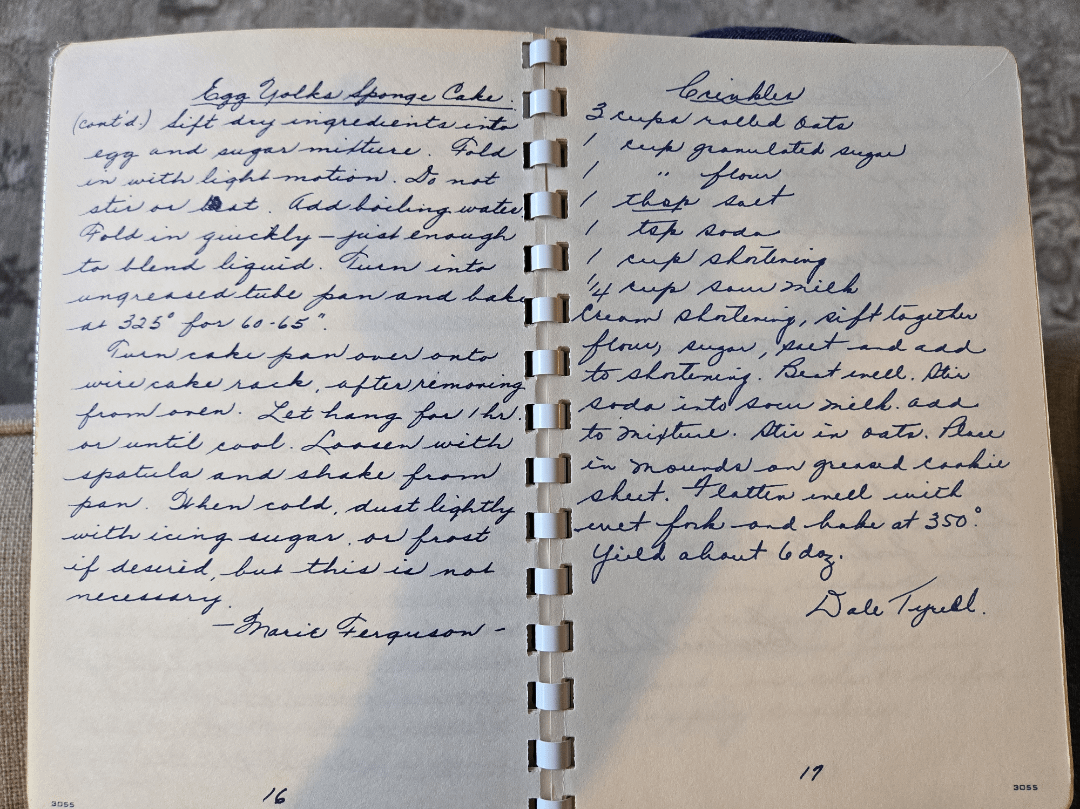 Egg Yolks Sponge Cake.
(cont'd.) Sift dry ingredients into
egg and sugar mixture. Fold
in with light motion. Do not
stir or beat. Add boiling water.
Fold in quickly – just enough
to blend liquid. Turn into
ungreased tube pan and bake
at 325° for 60-65".
Turn cake pan over onto
wire cake rack, after removing
from oven. Let hang for 1 hr.
or until cool. Loosen with
spatula and shake from
pan. When cold, dust lightly
with icing sugar, or frost
if desired, but this is not
necessary.
– Marie Ferguson –
16
3055
Crinkles
3 cups rolled oats
1 cup granulated sugar
1 " flour
1 tbsp salt
1 tsp soda
1 cup shortening
1/4 cup sour milk
Cream shortening, sift together
flour, sugar, salt and add
to shortening. Beat well. Stir
soda into sour milk. add
to mixture. Stir in oats. Place
in mounds on greased cookie
sheet. Flatten well with
wet fork and bake at 350°.
Yield about 6 doz.
Dale Tyrell.
17
3055